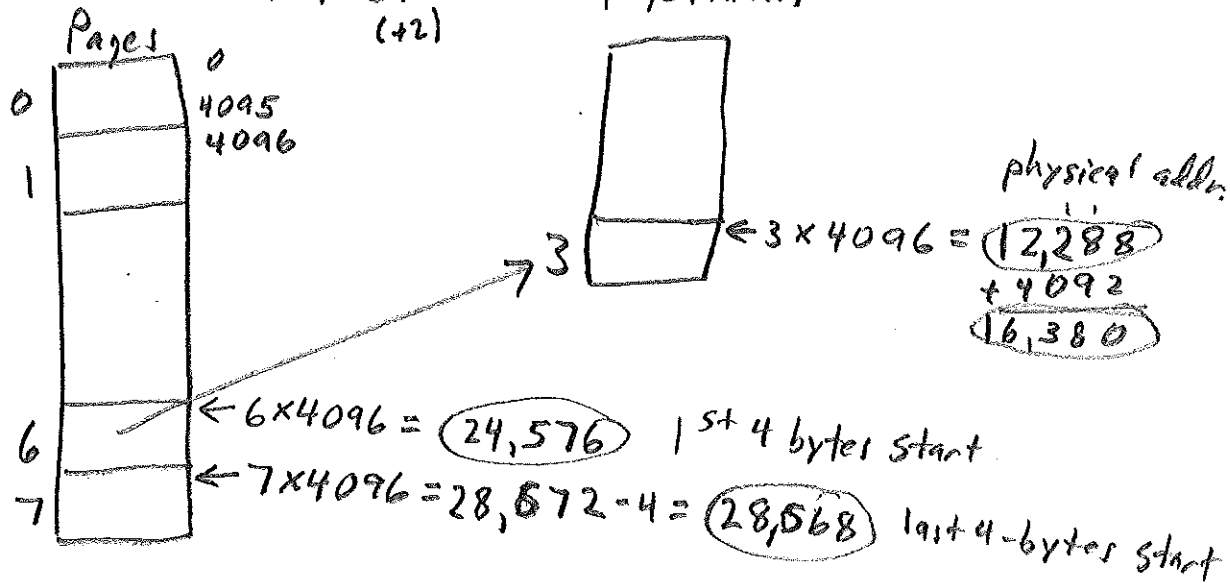 (+2)
Pages
0
0
4095
4096
1
physical addr.
3
← 3 × 4096 = 12,288
+ 4092
16,380
← 6×4096 = 24,576 1st 4 bytes start
6
← 7×4096 = 28,672 - 4 = 28,668 last 4-bytes start
7